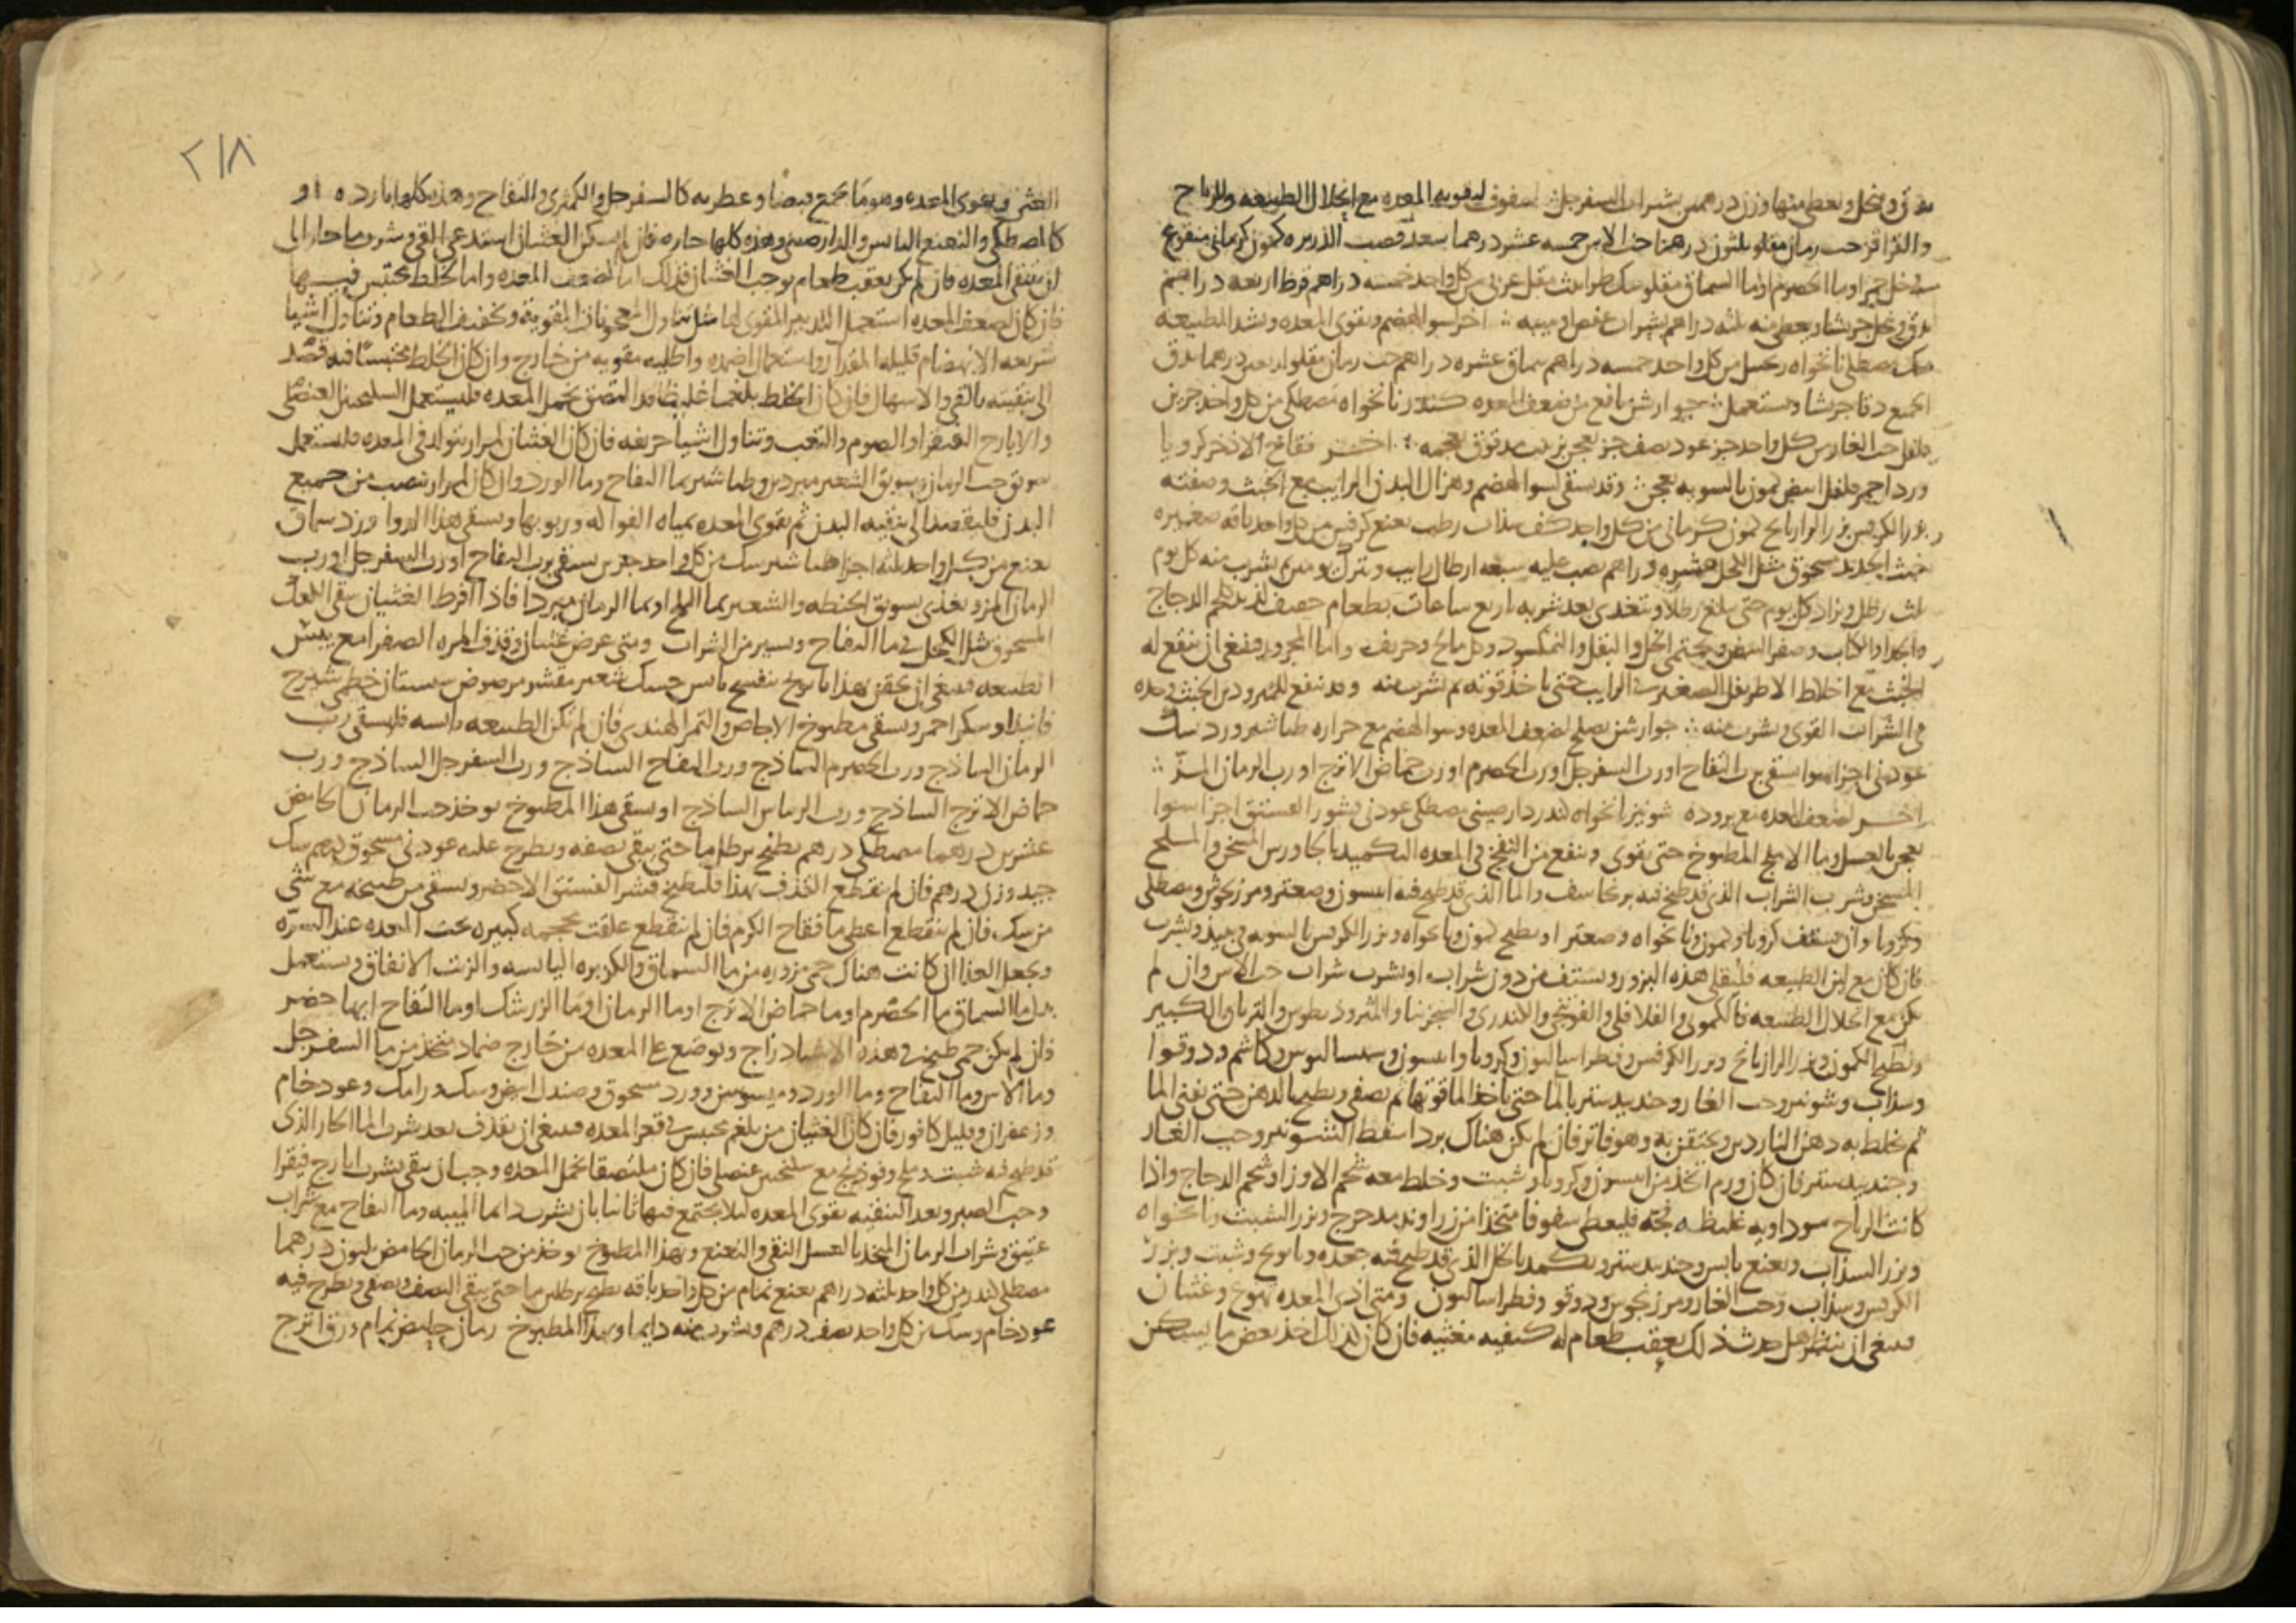 يدق وينخل ويعطى منها وزن درهمين بشراب السفرجل سفوف لتقويه المعده مع انحلال الطبيعه والرياح
والقراقر حب رمان مقلو ثلثون درهما حب الاس خمسه عشر درهما سعد قصب الذريره كمون كرماني منقوع
في خل خمر او ما الحصرم او ما السماق مقلو سك طراثيث مقل عربي من كل واحد خمسه دراهم قرظ اربعه دراهم
يدق وينخل جريشا ويعطى منه ثلثه دراهم بشراب عفص او ميبه اخر لسو الهضم ويقوى المعده ويشد الطبيعه
سك مصطكي نانخواه زنجبيل من كل واحد خمسه دراهم سماق عشره دراهم حب رمان مقلو اربعين درهما يدق
الجميع دقا جريشا ويستعمل جوارشن نافع من ضعف المعده كندر نانخواه مصطكي من كل واحد جزين
فلفل حب الغار من كل واحد جز عود نصف جز يعجن بزبيب مدقوق بعجمه اخر فقاح الاذخر كرويا
ورد احمر فلفل ابيض كمون بالسويه يعجن وقد يسقى لسو الهضم وهزال البدن الرايب مع الخبث وصفته
بزر الكرفس بزر الرازيانج كمون كرماني من كل واحد كف سذاب رطب نعنع كرفس من كل واحد باقه صغيره
خبث الحديد مسحوق مثل الكحل عشره دراهم يصب عليه سبعه ارطال رايب ويترك يومين ثم يشرب منه كل يوم
ثلث رطل ويزاد كل يوم حتى يبلغ رطلا ويتغدى بعد شربه باربع ساعات بطعام خفيف لذيذ كلحم الدجاج
والجدا والكباب وصفر البيض ويجتنب الخل والبقل والنمكسود وكل مالح وحريف واما المحرور فينبغي ان ينقع له
الخبث مع اخلاط الاطريفل الصغير في الرايب حتى ياخذ قوته ثم يشرب منه وقد ينفع المبرودين الخبث وحده
في الشراب القوى ويشرب منه جوارشن يصلح لضعف المعده وسو الهضم مع حراره طباشير ورد سك
عود ني اجزا سوا يسقى برب التفاح او رب السفرجل او رب الحصرم او رب حماض الاترج او رب الرمان المز
اخر لضعف المعده مع بروده شونيز نانخواه كندر دارصيني مصطكي عود ني قشور الفستق اجزا سوا
يعجن بالعسل وما الاملج المطبوخ حتى يقوى وينفع من النفخ في المعده التكميد بالجاورس المسخن والملح
المسخن وشرب الشراب الذي قد طبخ فيه برنجاسف والما الذي قد طبخ فيه انيسون وصعتر ومرزنجوش ومصطكي
وكرويا وان يستف كرويا وكمون ونانخواه وصعتر او يطبخ كمون ونانخواه وبزر الكرفس بالسويه في نبيذ ويشرب
فان كان مع لين الطبيعه فليقلى هذه البزور ويستف من دون شراب او يشرب شراب حب الاس وان لم
يكن مع انحلال الطبيعه فالكموني والفلافلي والفوذنجي والكندري والسجزنيا والمثروذيطوس والترياق الكبير
ويطبخ الكمون وبزر الرازيانج وبزر الكرفس وفطراساليون وكرويا وانيسون وسيساليوس وكاشم ودوقوا
وسذاب وشونيز وحب الغار وجندبيدستر بالما حتى ياخذ الما قوتها ثم يصفى ويطبخ بالدهن حتى يفنى الما
ثم يخلط به دهن الناردين ويحتقن به وهو فاتر فان لم يكن هناك برد اسقط الشونيز وحب الغار
وجندبيدستر فان كان ورم اتخذ من انيسون وكرويا وشبت وخلط معه شحم الاوز او شحم الدجاج واذا
كانت الرياح سوداويه غليظه فجه فليعطى سفوفا متخذا من زراوند مدحرج وبزر الشبت ونانخواه
وبزر السذاب ونعنع يابس وجندبيدستر ويكمد بالخل الذي قد طبخ فيه جعده وبابونج وشبت وبزر
الكرفس وسذاب وحب الغار ومرزنجوش ودوقو وفطراساليون ومتى اذى المعده تهوع وغثيان
فينبغي ان ينظر هل حدث ذلك بعقب طعام له كيفيه مغثيه فان كان كذلك اخذ بعض ما يسكن
٢١٨
الغثي ويقوى المعده وهو ما يجمع قبضا وعطريه كالسفرجل والكمثرى والتفاح وهذه كلها بارده او
كالمصطكي والنعنع اليابس والدارصيني وهذه كلها حاره فان لم يسكن الغثيان استدعى القي وشرب ما حار الى
ان ينقى المعده فان لم يكن بعقب طعام يوجب الغثيان فذلك اما لضعف المعده واما لخلط يحتبس فيها
فان كان لضعف المعده استعمل التدبير المقوى لها مثل تناول المعجونات المقويه وتخفيف الطعام وتناول اشيا
سريعه الانهضام قليله المقدار واستعمال اضمده واطليه مقويه من خارج وان كان الخلط محتبسا فيه قصد
الى تنقيته بالقي والاسهال فان كان الخلط بلغما غليظا قد التصق بخمل المعده فليستعمل السكنجبين العنصلي
والايارج الفيقرا والصوم والتعب وتناول اشيا حريفه فان كان الغثيان لمرار يتولد في المعده فليستعمل
سويق حب الرمان وسويق الشعير مبردين وطباشير بما التفاح وما الورد وان كان لمرار تنصب من جميع
البدن فليقصد الى تنقيه البدن ثم يقوى المعده بمياه الفواكه وربوبها ويسقى هذا الدوا ورد سماق
نعنع من كل واحد ثلثه اجزا طباشير سك من كل واحد جزين يسقى برب التفاح او رب السفرجل او رب
الرمان المز ويغذى بسويق الحنطه والشعير بما الثلج او بما الرمان مبردا فاذا افرط الغثيان سقى اللعل
المسحوق مثل الكحل في ما التفاح ويسير من الشراب ومتى عرض غثيان وقذف المره الصفرا مع يبس
الطبيعه فينبغي ان يحقن بهذا بابونج بنفسج يابس حسك شعير مقشور مرضوض سبستان خطمي شيرج
فانيذ او سكر احمر ويسقى مطبوخ الاجاص والتمر الهندي فان لم تكن الطبيعه يابسه فليسقى رب
الرمان الساذج ورب الحصرم الساذج ورب التفاح الساذج ورب السفرجل الساذج ورب
حماض الاترج الساذج ورب الريباس الساذج او يسقى هذا المطبوخ يوخذ حب الرمان الحامض
عشرين درهما مصطكي درهم يطبخ برطل ما حتى يبقى نصفه ويطرح عليه عود ني مسحوق درهم سك
جيد وزن درهم فان لم ينقطع القذف بهذا فليطبخ قشر الفستق الاخضر ويسقى من طبيخه مع شي
من سك فان لم ينقطع اعطى ما فقاح الكرم فان لم ينقطع علقت محجمه كبيره تحت المعده عند السره
ويجعل الغذا ان كانت هناك حمى مزوره من ما السماق والكزبره اليابسه والزيت الانفاق ويستعمل
بدل ما السماق ما الحصرم او ما حماض الاترج او ما الرمان او ما الزرشك او ما التفاح ايها حضر
فان لم يكن حمى طبخ في هذه الاشيا دراج ويوضع على المعده من خارج ضماد متخذ من ما السفرجل
وما الاس وما التفاح وما الورد وميسوسن وورد مسحوق وصندل ابيض وسك ورامك وعود خام
وزعفران وقليل كافور فان كان الغثيان من بلغم محتبس في قعر المعده فينبغي ان يقذف بعد شرب الما الحار الذي
قد طبخ فيه شبت وملح وفوذنج مع سكنجبين عنصلي فان كان ملتصقا بخمل المعده وجب ان يسقى بشرب ايارج فيقرا
وحب الصبر وبعد التنقيه يقوى المعده ليلا يجتمع فيها ثانيا بان يشرب دايما الميبه وما التفاح مع شراب
عتيق وشراب الرمان المتخذ بالعسل النقي والنعنع وبهذا المطبوخ يوخذ من حب الرمان الحامض ثلثون درهما
مصطكي كندر من كل واحد ثلثه دراهم نعنع نمام من كل واحد باقه يطبخ برطلين ما حتى يبقى النصف ويصفى ويطرح فيه
عود خام وسك من كل واحد نصف درهم ويشرب منه دايما وبهذا المطبوخ رمان حامض نمام ورق اترج